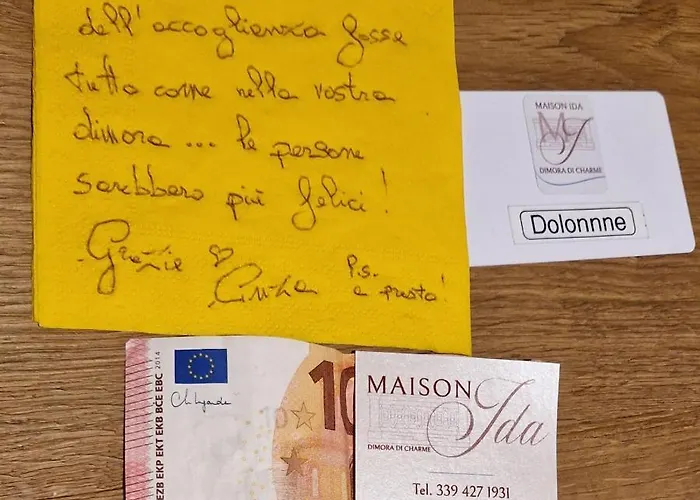 dell'accoglienza fosse
tutto come nella vostra
dimora ... le persone
sarebbero più felici!
Grazie ♡
Cinzia
P.S.
a presto!
MAISON IDA
MI
DIMORA DI CHARME
Dolonnne
BCE EBC 2014
EZB EKP EKT EKB
10
MAISON
Ida
DIMORA DI CHARME
Tel. 339 427 1931